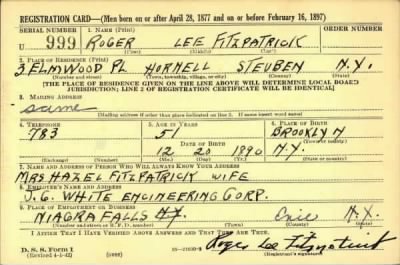 REGISTRATION CARD—(Men born on or after April 28, 1877 and on or before February 16, 1897)
SERIAL NUMBER 1. NAME (Print) ORDER NUMBER
U 999 ROGER LEE FITZPATRICK
(First) (Middle) (Last)
2. PLACE OF RESIDENCE (Print)
3 ELMWOOD PL HORNELL STEUBEN N.Y.
(Number and street) (Town, township, village, or city) (County) (State)
[THE PLACE OF RESIDENCE GIVEN ON THE LINE ABOVE WILL DETERMINE LOCAL BOARD
JURISDICTION; LINE 2 OF REGISTRATION CERTIFICATE WILL BE IDENTICAL]
3. MAILING ADDRESS
same
(Mailing address if other than place indicated on line 2. If same insert word same)
4. TELEPHONE 5. AGE IN YEARS 6. PLACE OF BIRTH
783 51 BROOKLYN
DATE OF BIRTH (Town or county)
12 20 1890 N.Y.
(Exchange) (Number) (Mo.) (Day) (Yr.) (State or country)
7. NAME AND ADDRESS OF PERSON WHO WILL ALWAYS KNOW YOUR ADDRESS
MRS HAZEL FITZPATRICK WIFE
8. EMPLOYER'S NAME AND ADDRESS
J. G. WHITE ENGINEERING CORP.
9. PLACE OF EMPLOYMENT OR BUSINESS
NIAGRA FALLS N.Y. N.Y.
(Number and street or R. F. D. number) (Town) (County) (State)
I AFFIRM THAT I HAVE VERIFIED ABOVE ANSWERS AND THAT THEY ARE TRUE.
D. S. S. Form 1
(Revised 4-1-42) (over)
Roger Lee Fitzpatrick